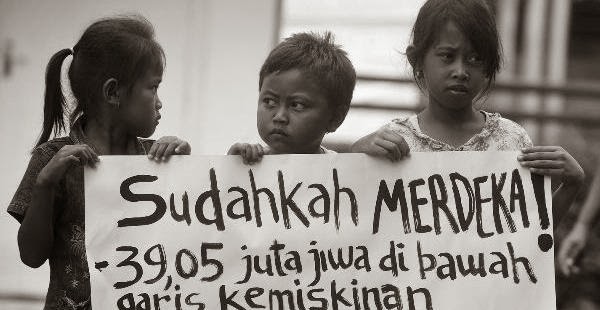 Sudahkah MERDEKA!
-39,05 juta jiwa di bawah
garis kemiskinan